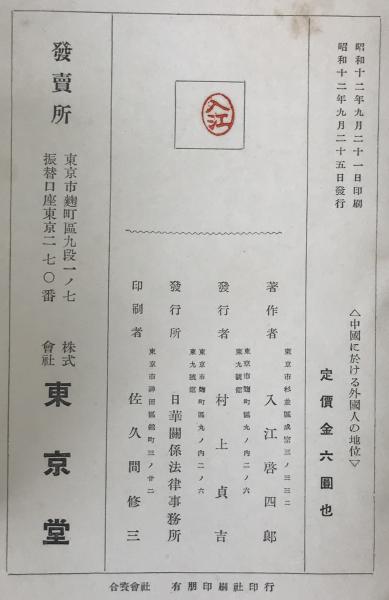 昭和十二年九月二十一日印刷
昭和十二年九月二十五日發行
△中國に於ける外國人の地位▽
定價金六圓也
入江
東京市杉並區成宗三ノ三三二
著作者 入江啓四郎
東京市麴町區丸ノ內二ノ六
東九號館
發行者 村上貞吉
東京市麴町區丸ノ內二ノ六
東九號館
發行所 日華關係法律事務所
東京市神田區錦町三ノ廿二
印刷者 佐久間修三
發賣所
東京市麴町區九段一ノ七
振替口座東京二七〇番
株式會社 東京堂
合資會社 有朋印刷社印行